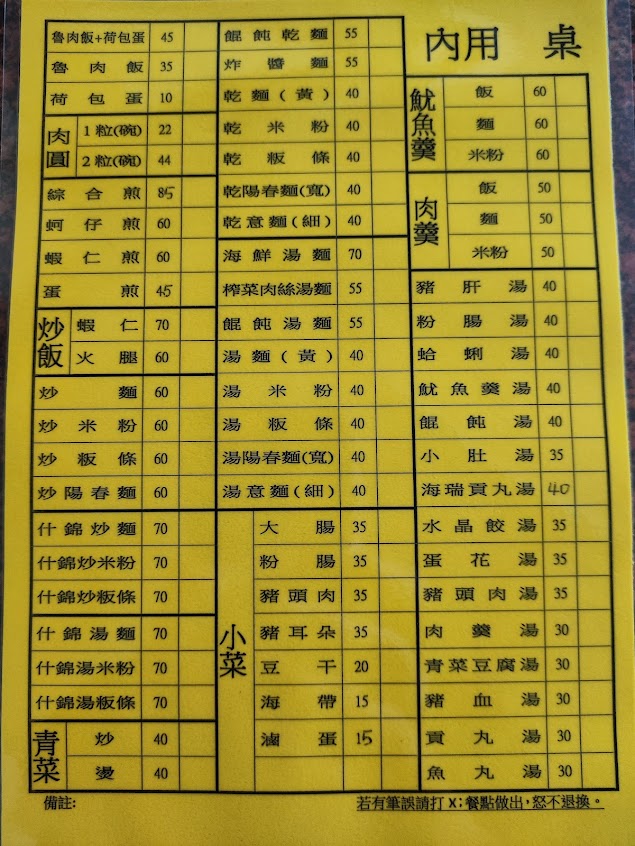 內用 桌
魯肉飯+荷包蛋 45
魯肉飯 35
荷包蛋 10
肉圓
1粒(碗) 22
2粒(碗) 44
綜合煎 85
蚵仔煎 60
蝦仁煎 60
蛋煎 45
炒飯
蝦仁 70
火腿 60
炒麵 60
炒米粉 60
炒粄條 60
炒陽春麵 60
什錦炒麵 70
什錦炒米粉 70
什錦炒粄條 70
什錦湯麵 70
什錦湯米粉 70
什錦湯粄條 70
青菜
炒 40
燙 40
餛飩乾麵 55
炸醬麵 55
乾麵(黃) 40
乾米粉 40
乾粄條 40
乾陽春麵(寬) 40
乾意麵(細) 40
海鮮湯麵 70
榨菜肉絲湯麵 55
餛飩湯麵 55
湯麵(黃) 40
湯米粉 40
湯粄條 40
湯陽春麵(寬) 40
湯意麵(細) 40
小菜
大腸 35
粉腸 35
豬頭肉 35
豬耳朵 35
豆干 20
海帶 15
滷蛋 15
魷魚羹
飯 60
麵 60
米粉 60
肉羹
飯 50
麵 50
米粉 50
豬肝湯 40
粉腸湯 40
蛤蜊湯 40
魷魚羹湯 40
餛飩湯 40
小肚湯 35
海瑞貢丸湯 40
水晶餃湯 35
蛋花湯 35
豬頭肉湯 35
肉羹湯 30
青菜豆腐湯 30
豬血湯 30
貢丸湯 30
魚丸湯 30
備註:
若有筆誤請打X;餐點做出,怒不退換。